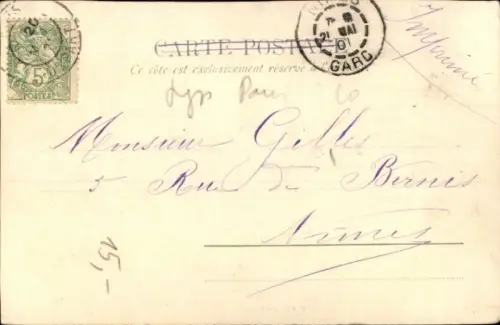 CARTE POSTALE
Ce côté est exclusivement réservé à
Imprimé
5
POSTES
21 MAI 01
GARD
Monsieur Gilles
5 Rue de Bernis
Nîmes
15,-